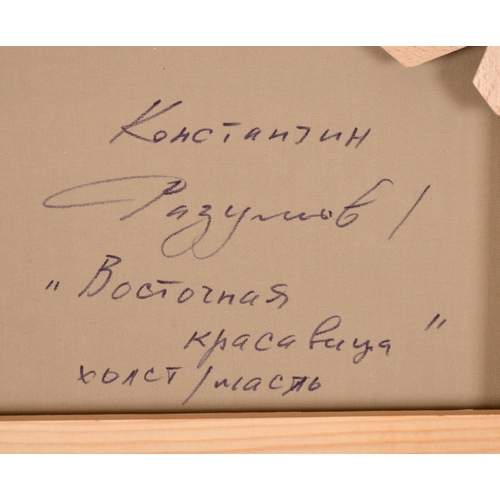 Константин
Разумов /
"Восточная
красавица"
холст/масть